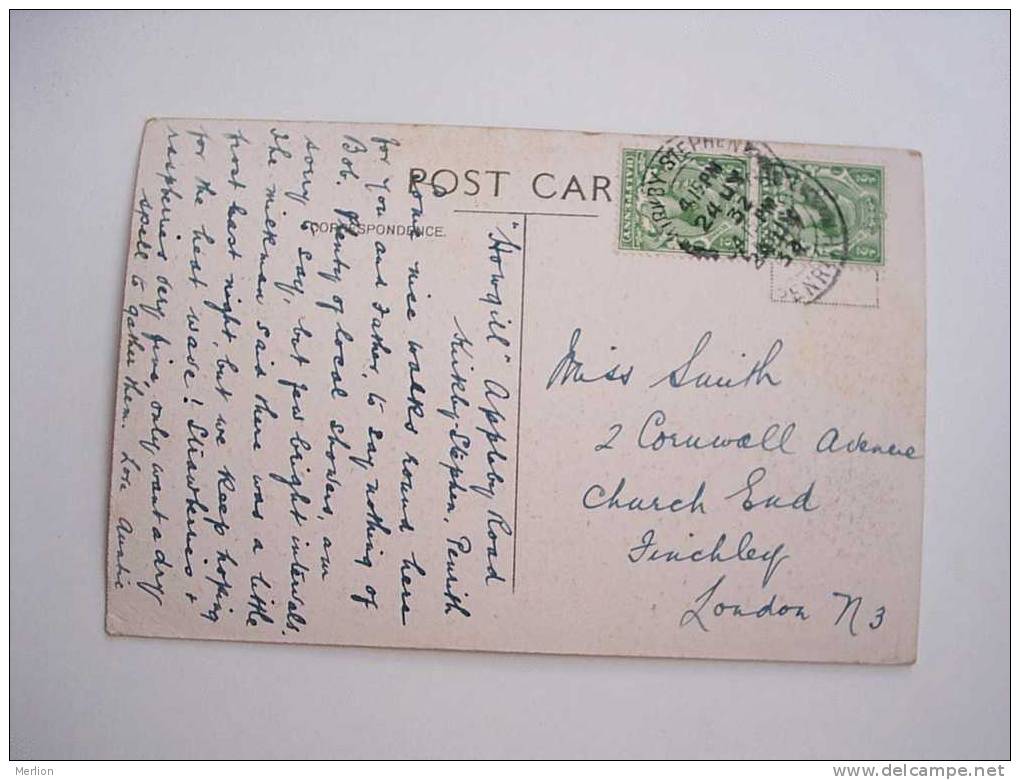 POST CAR
CORRESPONDENCE.
"Howgill" Appleby Road
Kirkby-Stephen, Penrith
Some nice walks round here
for you and Father, to say nothing of
Bob. Plenty of local showers, am
sorry to say, but few bright intervals.
The milkman said there was a little
frost last night, but we keep hoping
for the heat wave! Strawberries &
raspberries very fine, only want a dry
spell to gather them. Love Auntie
Miss Smith
2 Cornwall Avenue
Church End
Finchley
London N3
KIRKBY STEPHEN
4.15 PM
24
32
PENRI
Merlion
www.delcampe.net